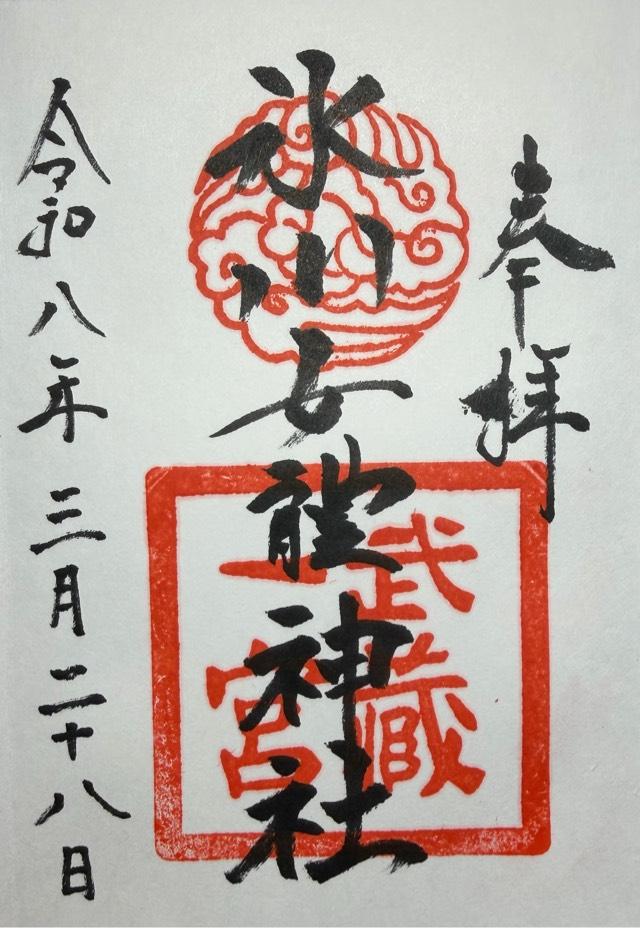 奉拝
氷川女體神社
武蔵
一宮
令和八年三月二十八日